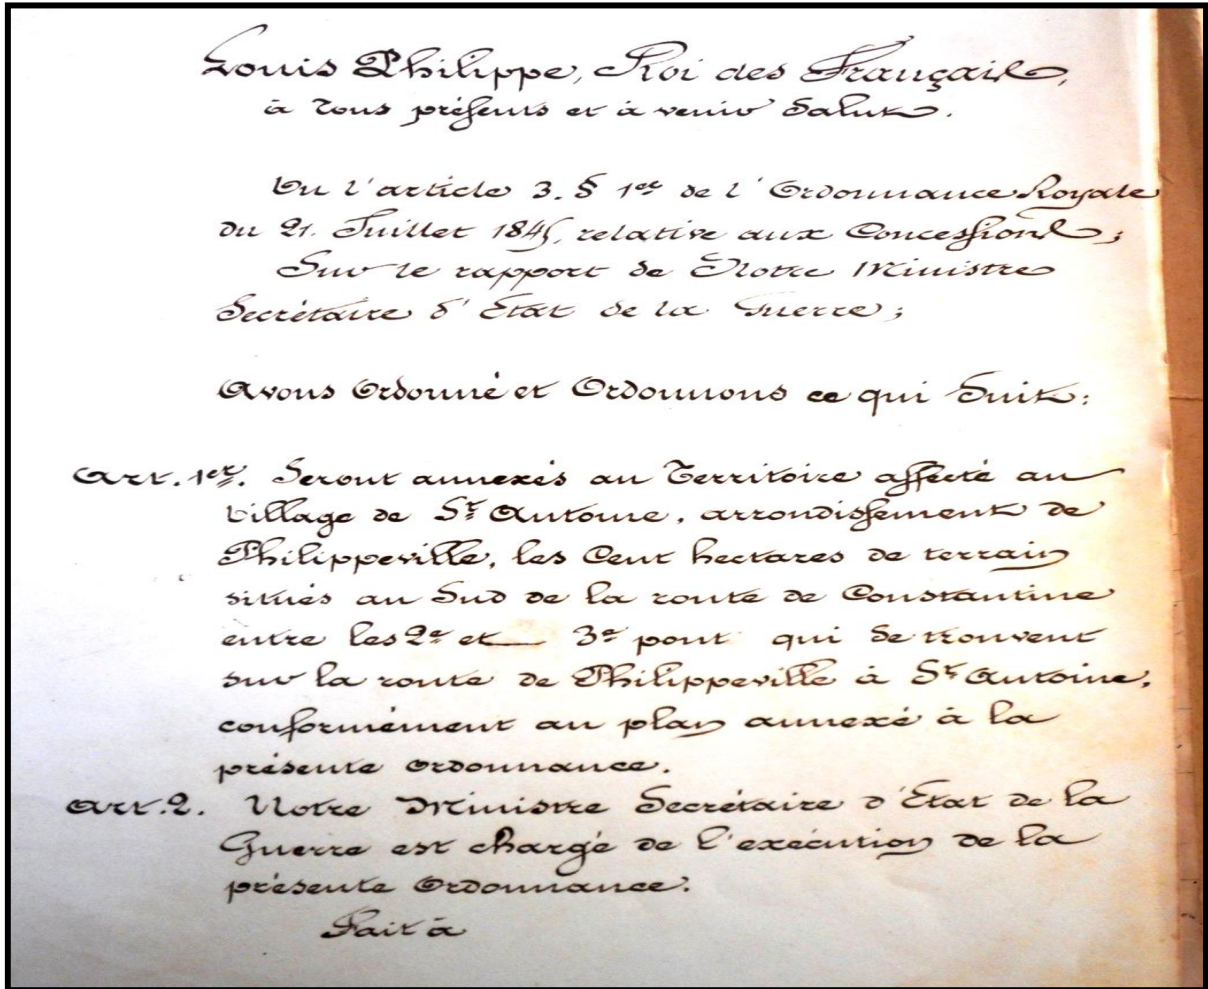 Louis Philippe, Roi des Français,
à tous présents et à venir Salut.
Vu l'article 3. § 1er de l'Ordonnance Royale
du 21. Juillet 1845, relative aux Concessions;
Sur le rapport de Notre Ministre
Secrétaire d'Etat de la Guerre;
Avons Ordonné et Ordonnons ce qui Suit:
Art. 1er. Seront annexés au Territoire affecté au
Village de St Antoine, arrondissement de
Philippeville, les Cent hectares de terrain
situés au Sud de la route de Constantine
entre les 2e et 3e pont qui se trouvent
sur la route de Philippeville à St Antoine,
conformément au plan annexé à la
présente ordonnance.
Art. 2. Notre Ministre Secrétaire d'Etat de la
Guerre est chargé de l'exécution de la
présente Ordonnance.
Fait à